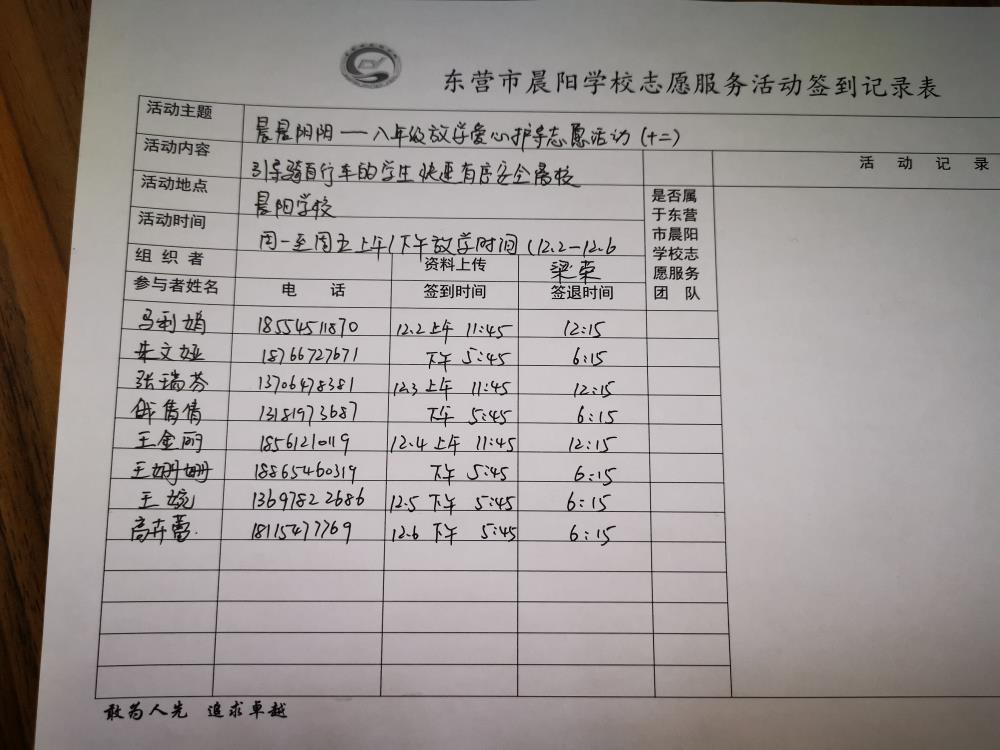 东营市晨阳学校志愿服务活动签到记录表
活动主题 晨晨阳阳——八年级放学爱心护学志愿活动(十二)
活动内容 引导骑自行车的学生快速有序安全离校 活动记录
活动地点 晨阳学校
活动时间 周一至周五上午/下午放学时间(12.2-12.6
组织者 资料上传 梁荣
是否属
于东营
市晨阳
学校志
愿服务
团队
参与者姓名 电话 签到时间 签退时间
马利娟 18554511870 12.2上午 11:45 12:15
朱文娅 18766727671 下午 5:45 6:15
张瑞芬 13706478381 12.3上午 11:45 12:15
隽倩 13181973687 下午 5:45 6:15
王金丽 18561210119 12.4上午 11:45 12:15
王姗姗 18865460319 下午 5:45 6:15
王婉 13697822686 12.5下午 5:45 6:15
高卉蕾 18115477769 12.6下午 5:45 6:15
敢为人先 追求卓越